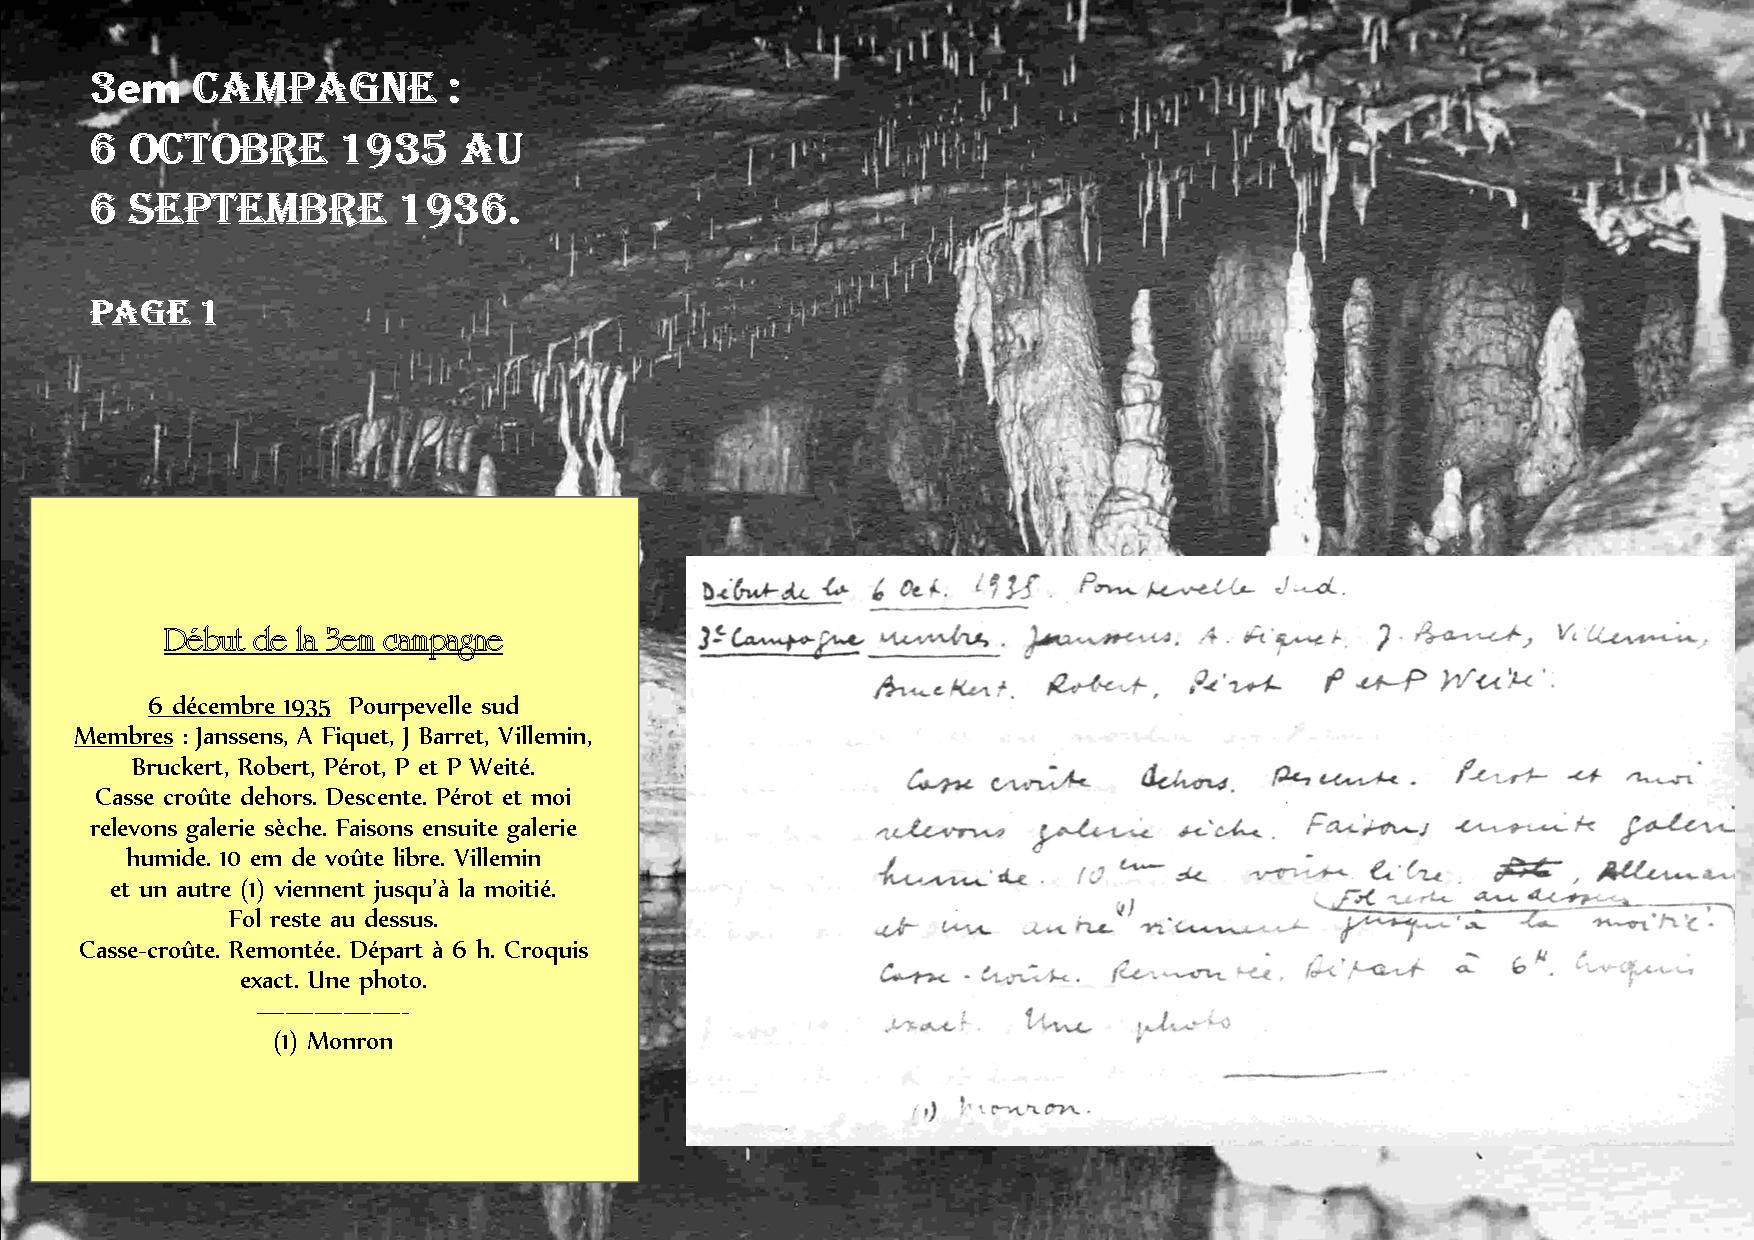 3em CAMPAGNE :
6 OCTOBRE 1935 AU
6 SEPTEMBRE 1936.
PAGE 1
Début de la 3em campagne
6 décembre 1935 Pourpevelle sud
Membres : Janssens, A Fiquet, J Barret, Villemin,
Bruckert, Robert, Pérot, P et P Weité.
Casse croûte dehors. Descente. Pérot et moi
relevons galerie sèche. Faisons ensuite galerie
humide. 10 em de voûte libre. Villemin
et un autre (1) viennent jusqu'à la moitié.
Fol reste au dessus.
Casse-croûte. Remontée. Départ à 6 h. Croquis
exact. Une photo.
-----------------------
(1) Monron
Début de la 6 Oct. 1935. Sud.
3e Campagne membres. Janssens. A. Fiquet. J. Barret, Villemin,
Bruckert. Robert, Pérot P et P Weité.
Casse croûte dehors. Descente. Perot et moi
relevons galerie sèche. Faisons ensuite galeri
humide. 10 cm de voûte libre. , Alleman
Fol reste au dessus
et un autre (1) viennent jusqu'à la moitié.
Casse-croûte. Remontée. Départ à 6 H. Croquis
exact. Une photo
(1) Monron.